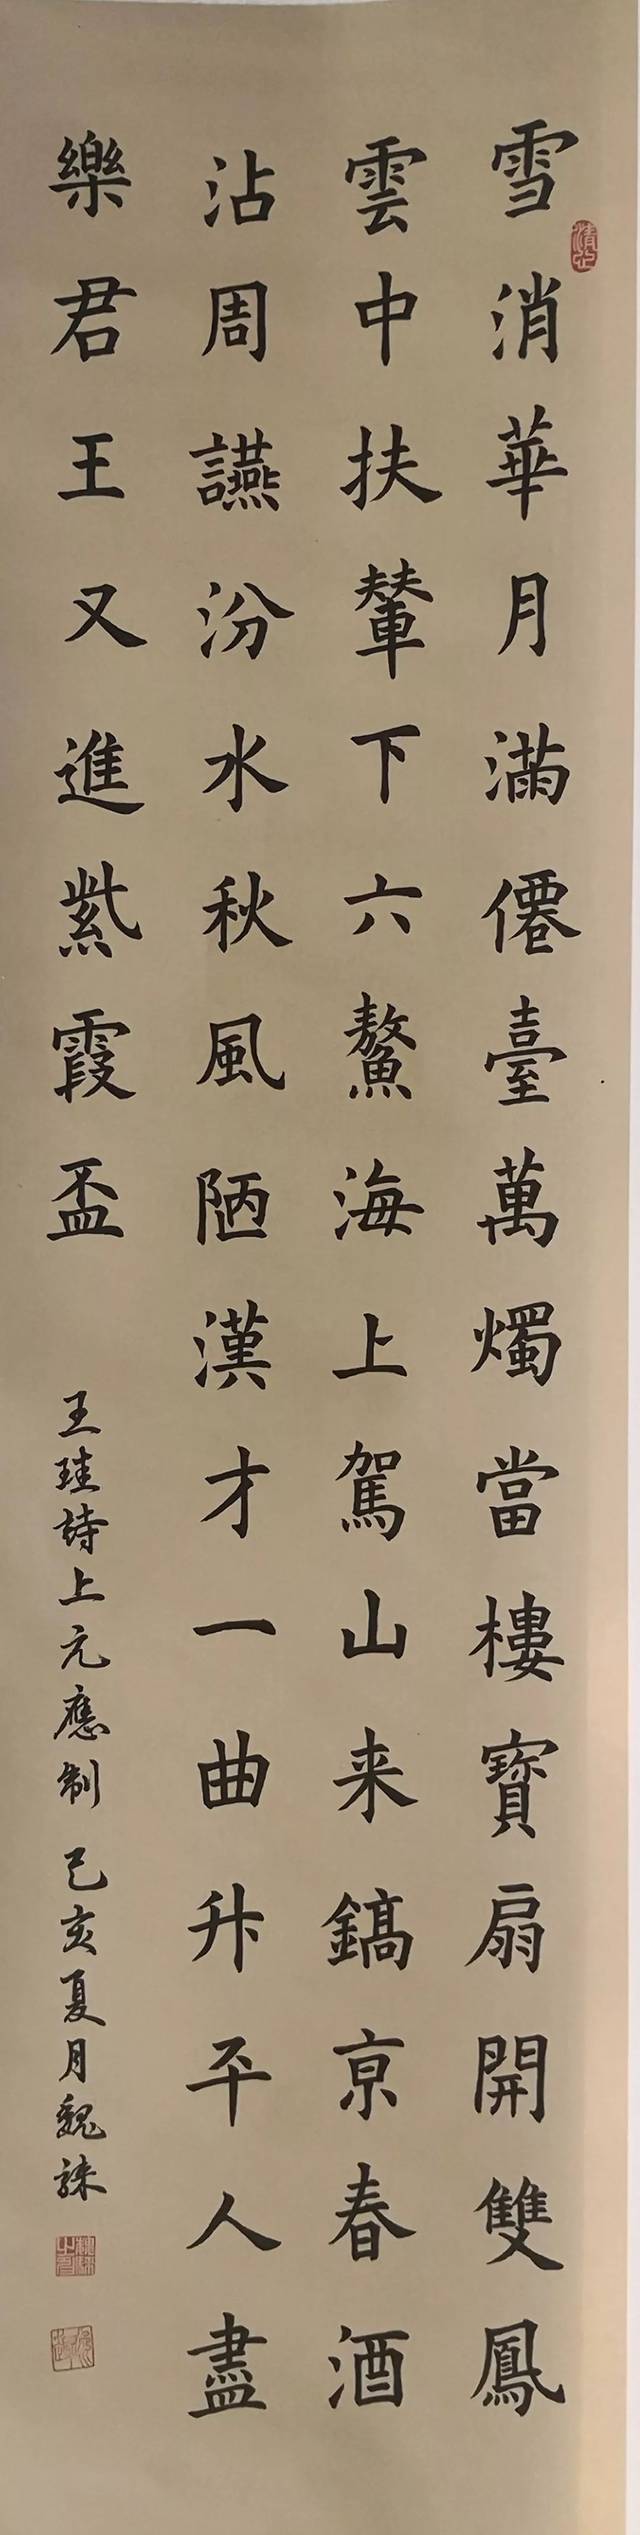 雪消華月滿僊臺萬燭當樓寶扇開雙鳳
雲中扶輦下六鰲海上駕山来鎬亰春酒
沾周讌汾水秋風陋漢才一曲升平人盡
樂君王又進紫霞盃
王珪詩上元應制 己亥夏月魏誺
清心